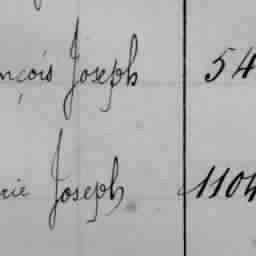 nçois Joseph 54
rie Joseph 1104